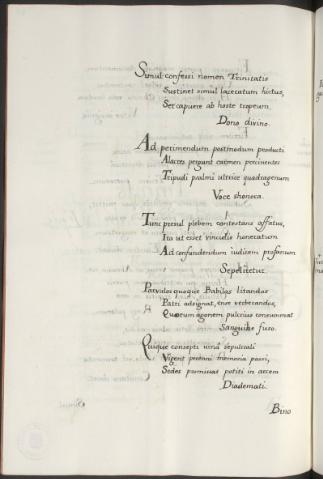 Simul confessi nomen Trinitatis
Sustinet simul lacecatum hictus,
Ser capuere ab hoste tropeum
Dono divino.
Ad perimendum postmodum producti
Alacres pergunt carmen percinentes
Tripudi psalmi utrice quadragenum
Voce shonora.
Tunc presul plebem contestans affatus,
Ita ut esset vinculis honeratum
Ad confundendum iudicem profanum
Sepelitetur.
Parvulos quoque Babilas litandos
Patri adsignat, ense verberandos,
Quorum agonem pulcrius consummat
Sanguine fuso.
Quique consepti urna sepulcrali
Vigent perenni memoria passi,
Sedes promissas potiti in arcem
Diademati.
Bino